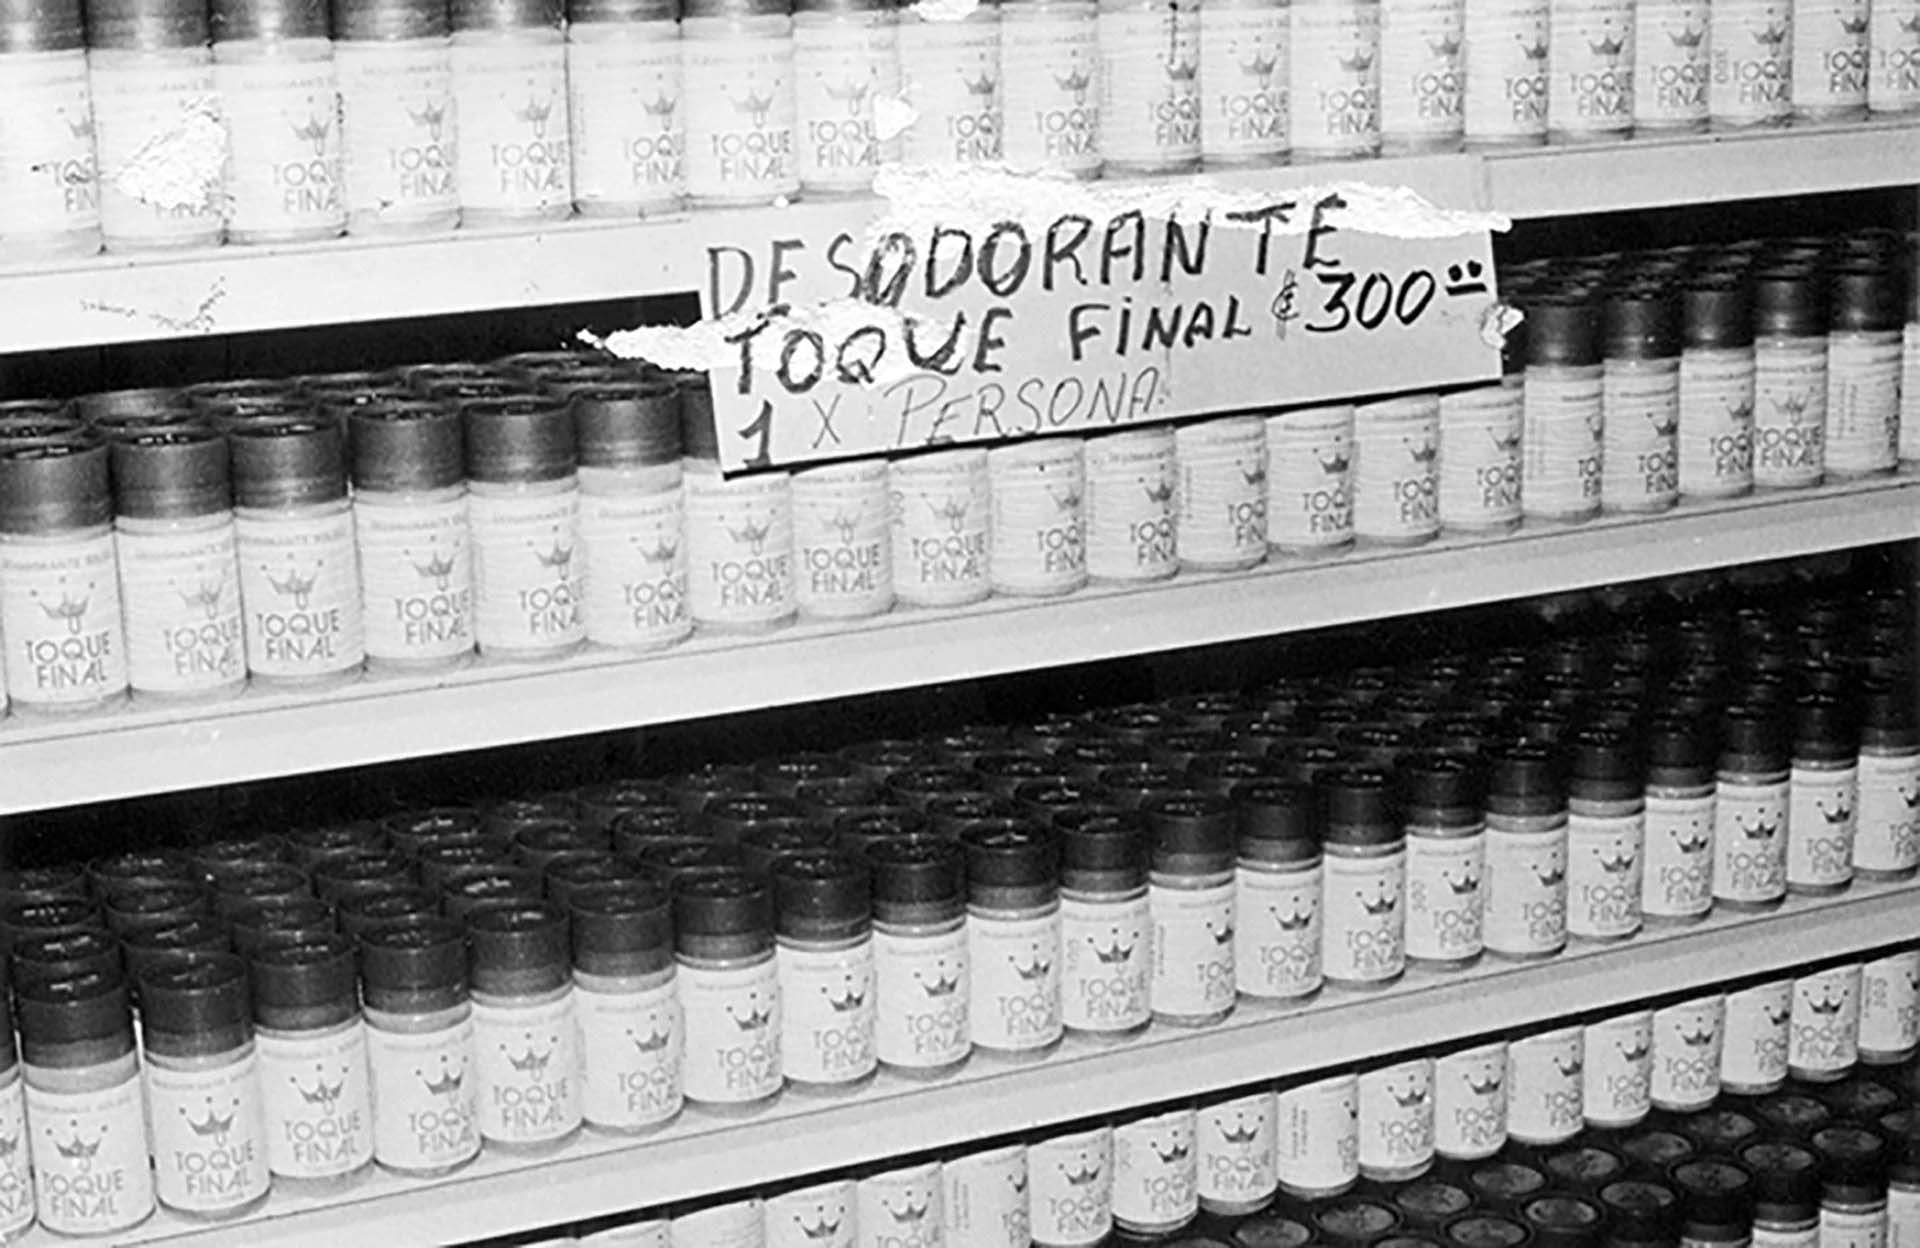 DESODORANTE
TOQUE FINAL ₡300
1 X PERSONA.
TOQUE
FINAL